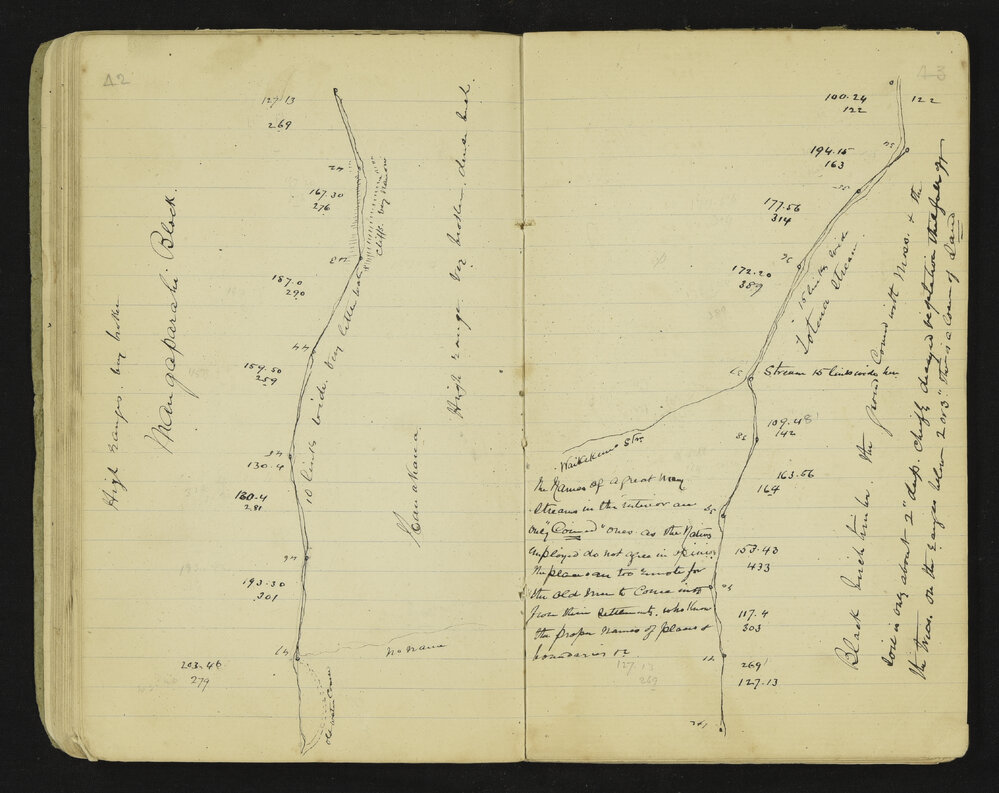 42
127.13
269
42
167.30
276
Cliffs very narrow
43
187.0
290
44
159.50
259
45
130.4
160.4
281
46
193.30
301
47
203.46
279
No Name
Old water Course
High ranges very broken
Mangaparahi Block.
10 links wide. Very little water
High range. Very broken. dense bush.
43
100.24
122
122
34
194.15
163
35
177.56
314
36
172.20
389
15 links wide
Totara Stream.
37
Stream 15 links wide here
38
109.48
142
163.56
164
39
153.43
433
40
117.4
303
41
269
127.13
42
Str.
The Names of a great many
Streams in the interior are
only "Coined" ones as the Natives
employed do not agree in giving
the places are too remote for
the old men to come into
from their settlements, who know
the proper names of places &
boundaries
127.13
269
Black birch timber. the ground covered with Moss. & the
soil is only about 2" deep. Chiefly decayed vegetation that fall off
the trees. on the ranges below 2 or 3" there is a loam of Sand